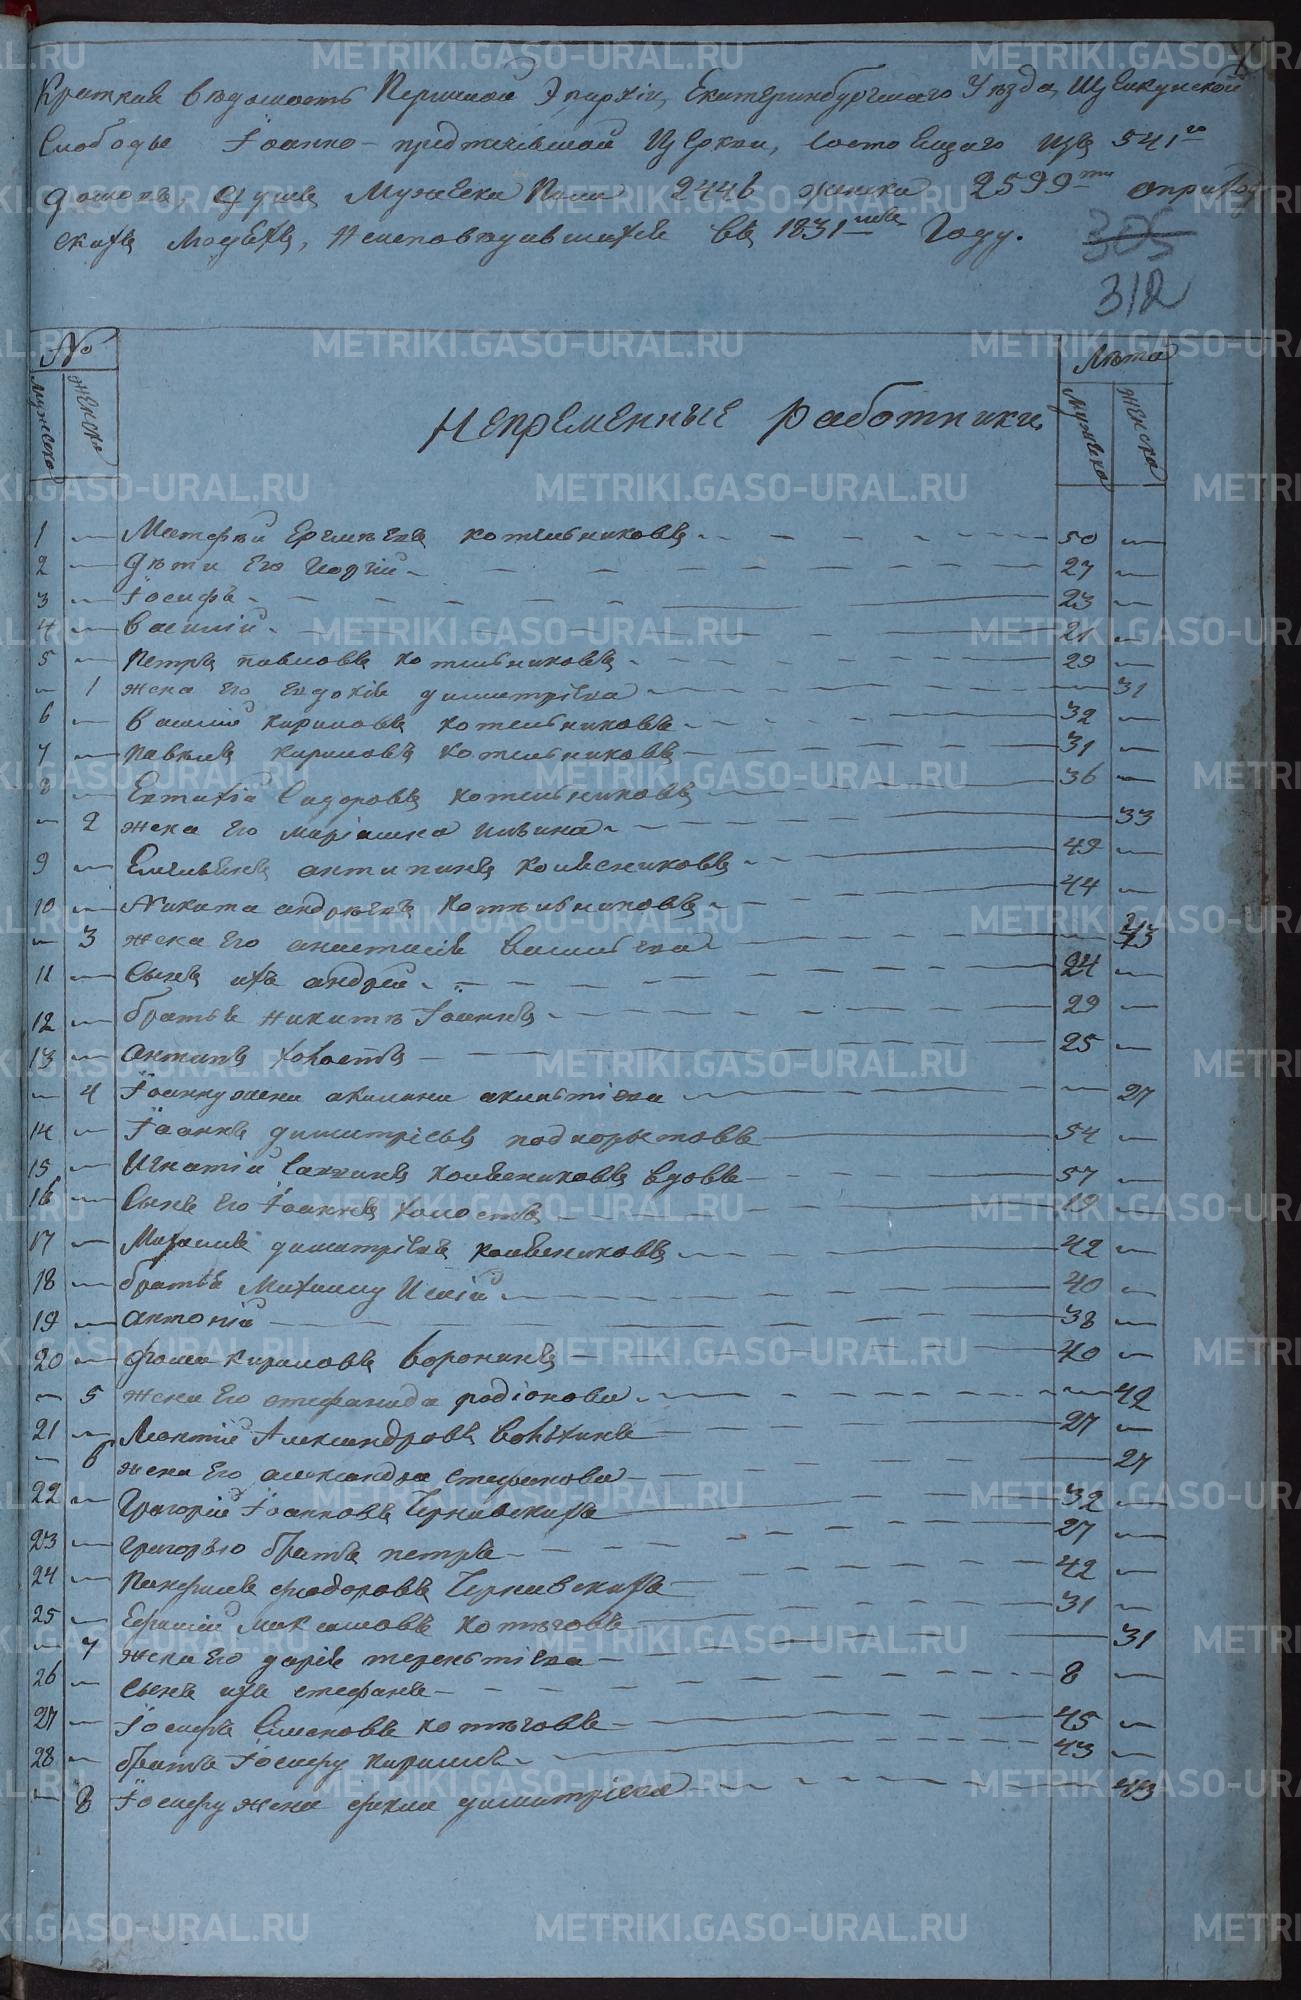 Краткая ведомость Пермской Эпархіи, Екатеринбургскаго Уезда, Щелкунской
Слободы Іоанно-предтечевской Церкви, состоящаго изъ 541го
домовъ, душъ Мужеска Пола 2446 женска 2599ти о приход
скихъ людехъ, неисповедавшихся въ 1831мъ Году.
305
312
№
Лета
мужеска
женска
мужеска
женска
Непременные работники.
1 — Матфей Ергинъ Котельниковъ 50 —
2 — Дети Его Георгій 27 —
3 — Іосифъ 23 —
4 — Василій 21 —
5 — Петръ павловъ Котельниковъ 29 —
— 1 жена Его Евдокія димитріева — 31
6 — Василій Кириловъ Котельниковъ 32 —
7 — Павелъ Кириловъ Котельниковъ 31 —
8 — Евтихій Сидоровъ Котельниковъ 36 —
— 2 жена Его маріамна — 33
9 — Емельянъ антипинъ Колесниковъ 49 —
10 — Никита андреевъ Котельниковъ 44 —
— 3 жена Его анастасія Васильева — 43
11 — Сынъ ихъ андрей 24 —
12 — братья Никите Іоаннъ 29 —
13 — антипъ холостъ 25 —
— 4 Іоанну жена акилина — 27
14 — Іоаннъ димитріевъ подкорытовъ 54 —
15 — Игнатій Савинъ Колесниковъ вдовъ 57 —
16 — Сынъ Его Іоаннъ холостъ 19 —
17 — Михаилъ димитріевъ колесниковъ 42 —
18 — братья Михаилу Исаій 40 —
19 — антоній 38 —
20 — фома кириловъ Воронинъ 40 —
— 5 жена Его стефанида родіонова — 42
21 — Леонтій Александровъ Волхинъ 27 —
— 6 жена Его александра стефанова — 27
22 — Григорій Іоанновъ Чернавскихъ 32 —
23 — Григорью братъ петръ 27 —
24 — Панфилъ феодоровъ Чернавскихъ 42 —
25 — Ефимій Максимовъ Котеговъ 31 —
— 7 жена Его дарія терентіева — 31
26 — Сынъ ихъ стефанъ 8 —
27 — Іосифъ Симеоновъ Котеговъ 45 —
28 — братъ Іосифу Кирилъ 43 —
— 8 Іосифу жена фекла димитріева — 43
METRIKI.GASO-URAL.RU